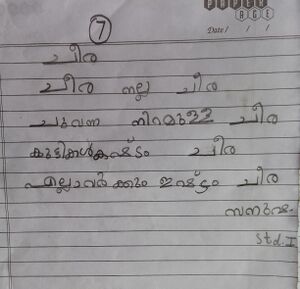 PAPER
AGE
Date / / /
7
ചീര
ചീര നല്ല ചീര
ചുവന്ന നിറമുള്ള ചീര
കുട്ടികൾക്കിഷ്ടം ചീര
എല്ലാവർക്കും ഇഷ്ടം ചീര
Std. I